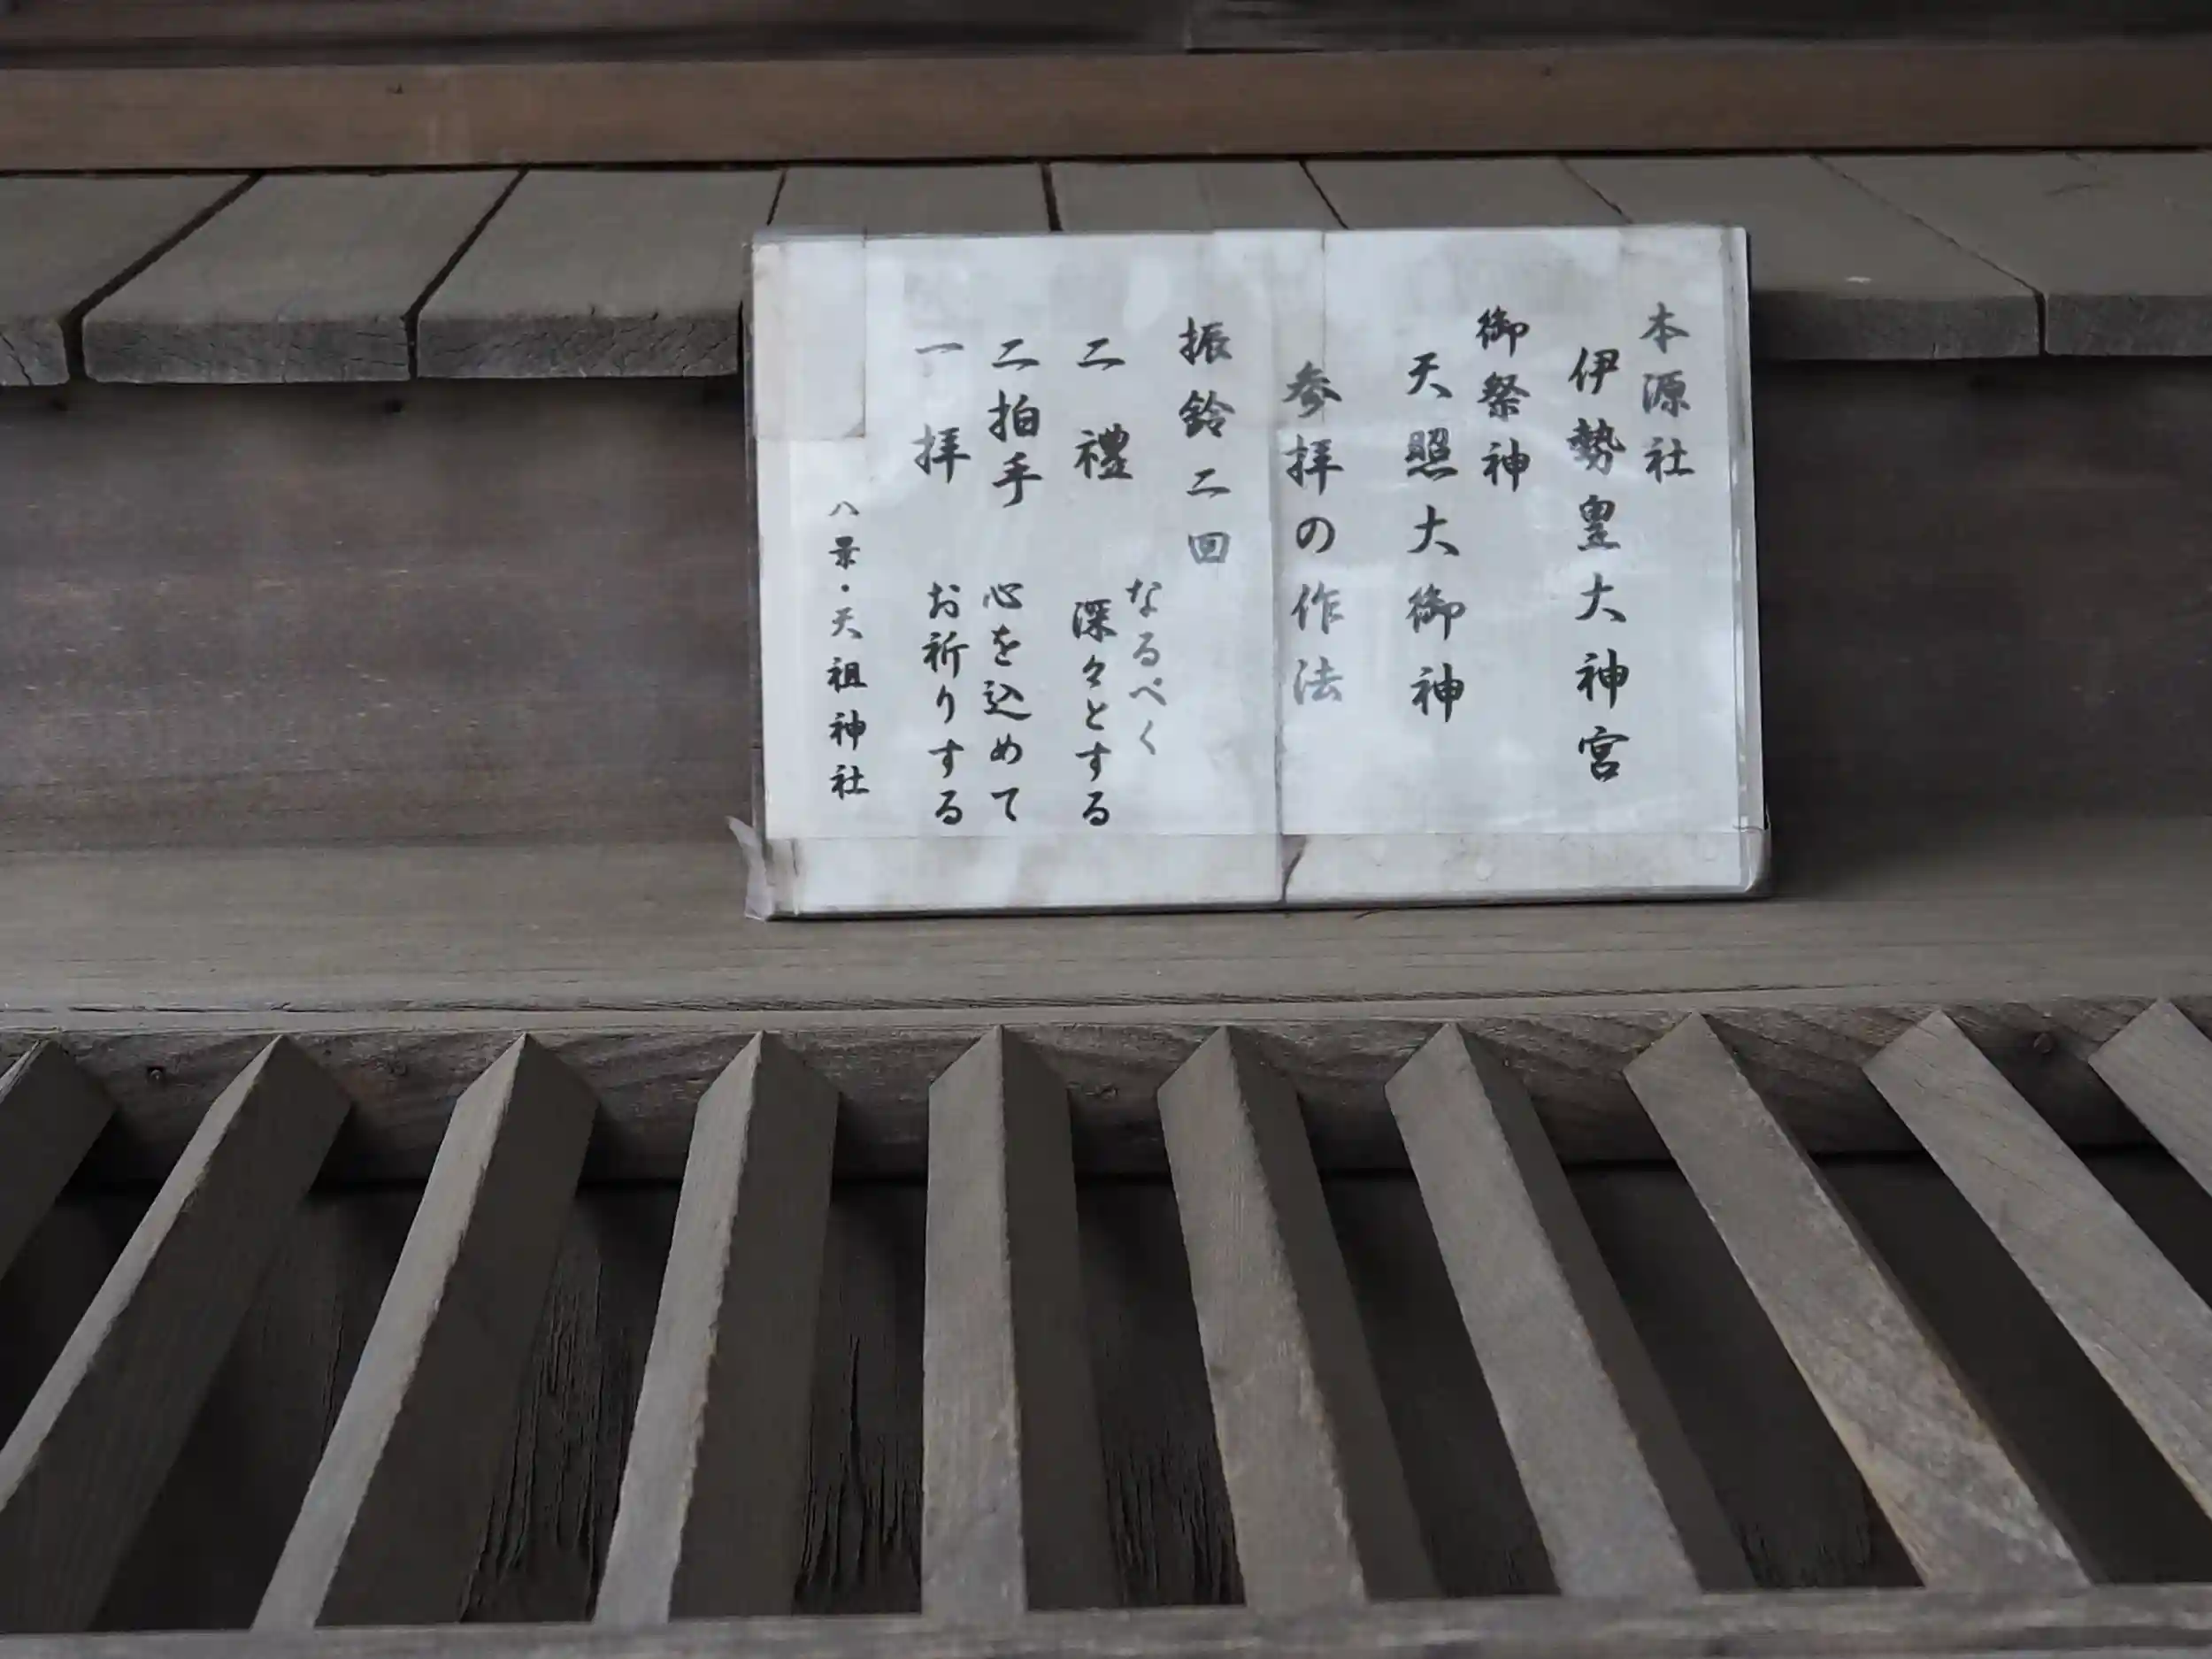 本源社
伊勢皇大神宮
御祭神
天照大御神
参拝の作法
振鈴二回
二禮
なるべく
深々とする
二拍手
心を込めて
一拝
お祈りする
八景・天祖神社